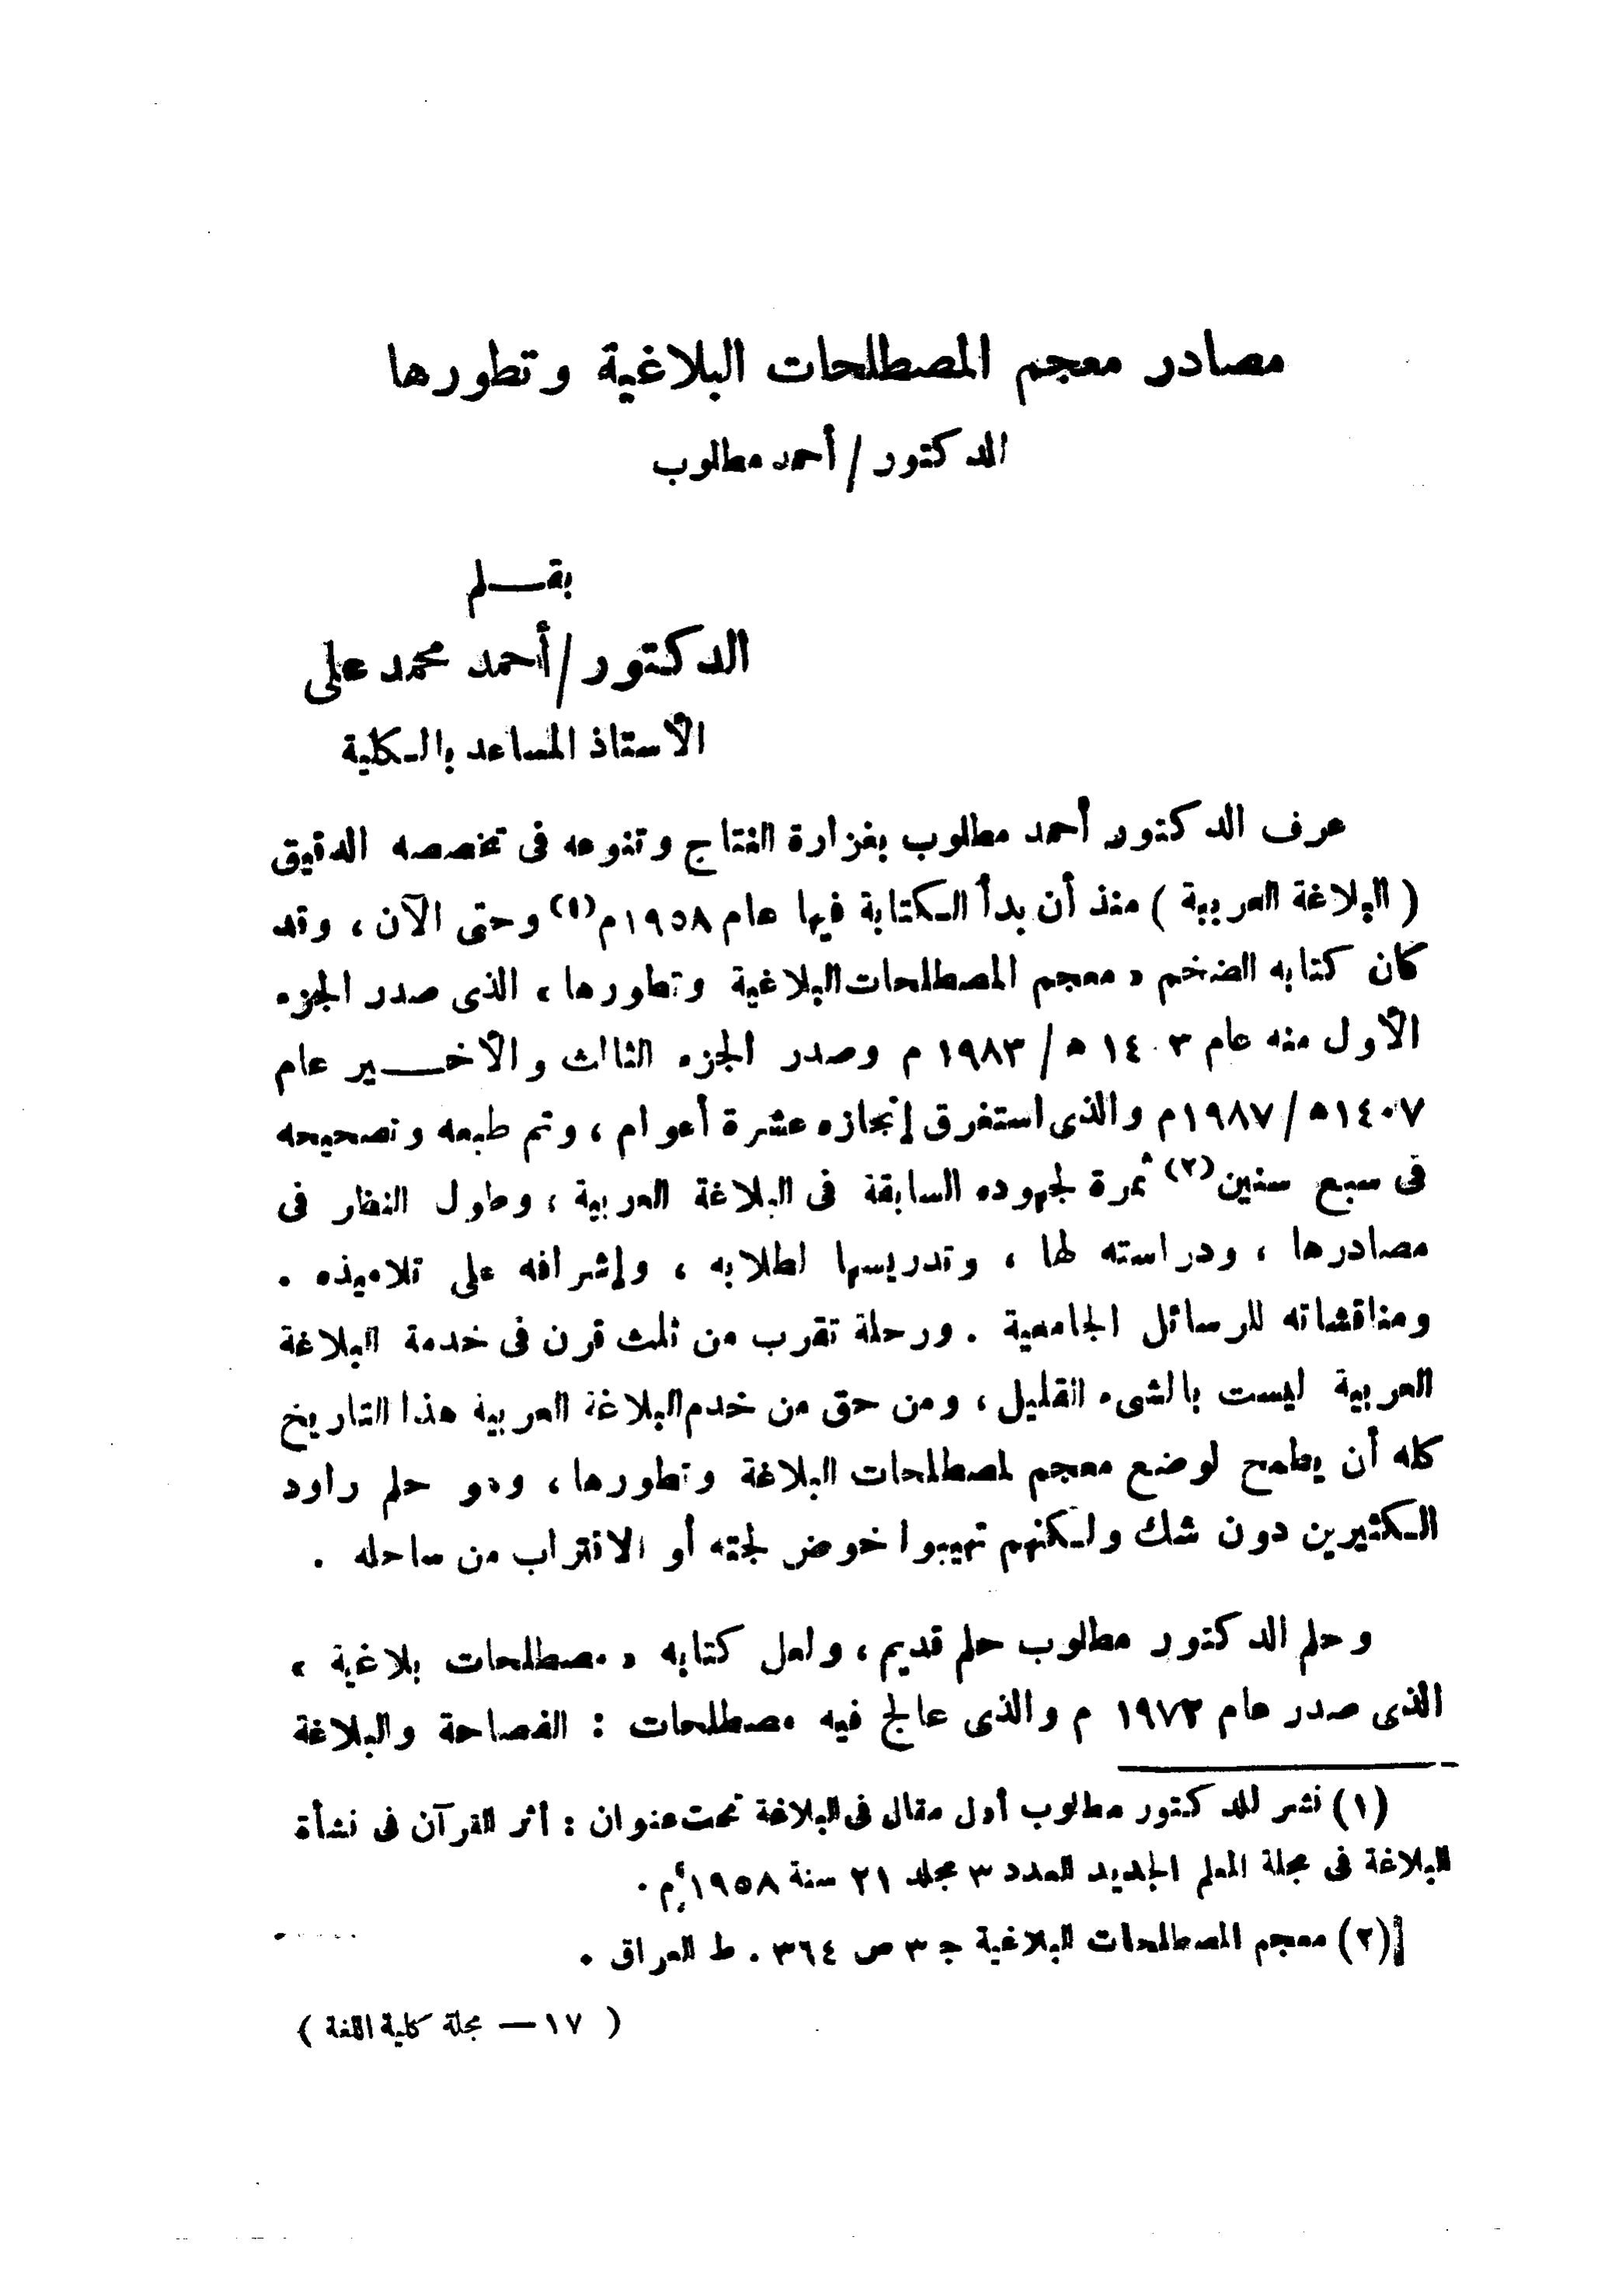 مصادر معجم المصطلحات البلاغية وتطورها
الدكتور / أحمد مطلوب
بقلم
الدكتور / أحمد محمد على
الأستاذ المساعد بالكلية
عرف الدكتور أحمد مطلوب بغزارة النتاج وتنوعه فى تخصصه الدقيق
( البلاغة العربية ) منذ أن بدأ الكتابة فيها عام ١٩٥٨م (١) وحتى الآن ، وقد
كان كتابه الضخم « معجم المصطلحات البلاغية وتطورها » الذى صدر الجزء
الأول منه عام ١٤٠٣ هـ / ١٩٨٣ م وصدر الجزء الثالث والأخير عام
١٤٠٧هـ / ١٩٨٧م والذى استغرق إنجازه عشرة أعوام ، وتم طبعه وتصحيحه
فى سبع سنين (٢) ثمرة لجهوده السابقة فى البلاغة العربية ، وطول النظر فى
مصادرها ، ودراسته لها ، وتدريسها لطلابه ، وإشرافه على تلاميذه .
ومناقشاته للرسائل الجامعية . ورحلة تقرب من ثلث قرن فى خدمة البلاغة
العربية ليست بالشىء القليل ، ومن حق من خدم البلاغة العربية هذا التاريخ
كله أن يطمح لوضع معجم لمصطلحات البلاغة وتطورها ، وهو حلم راود
الكثيرين دون شك ولكنهم تهيبوا خوض لجته أو الاقتراب من ساحله .
وحلم الدكتور مطلوب حلم قديم ، ولعل كتابه « مصطلحات بلاغية »
الذى صدر عام ١٩٧٢ م والذى عالج فيه مصطلحات : الفصاحة والبلاغة
(١) نشر للدكتور مطلوب أول مقال فى البلاغة تحت عنوان : أثر القرآن فى نشأة
البلاغة فى مجلة المعلم الجديد العدد ٣ مجلد ٢١ سنة ١٩٥٨م .
(٢) معجم المصطلحات البلاغية جـ ٣ ص ٣٦٤ . ط العراق .
( ١٧ — مجلة كلية اللغة )